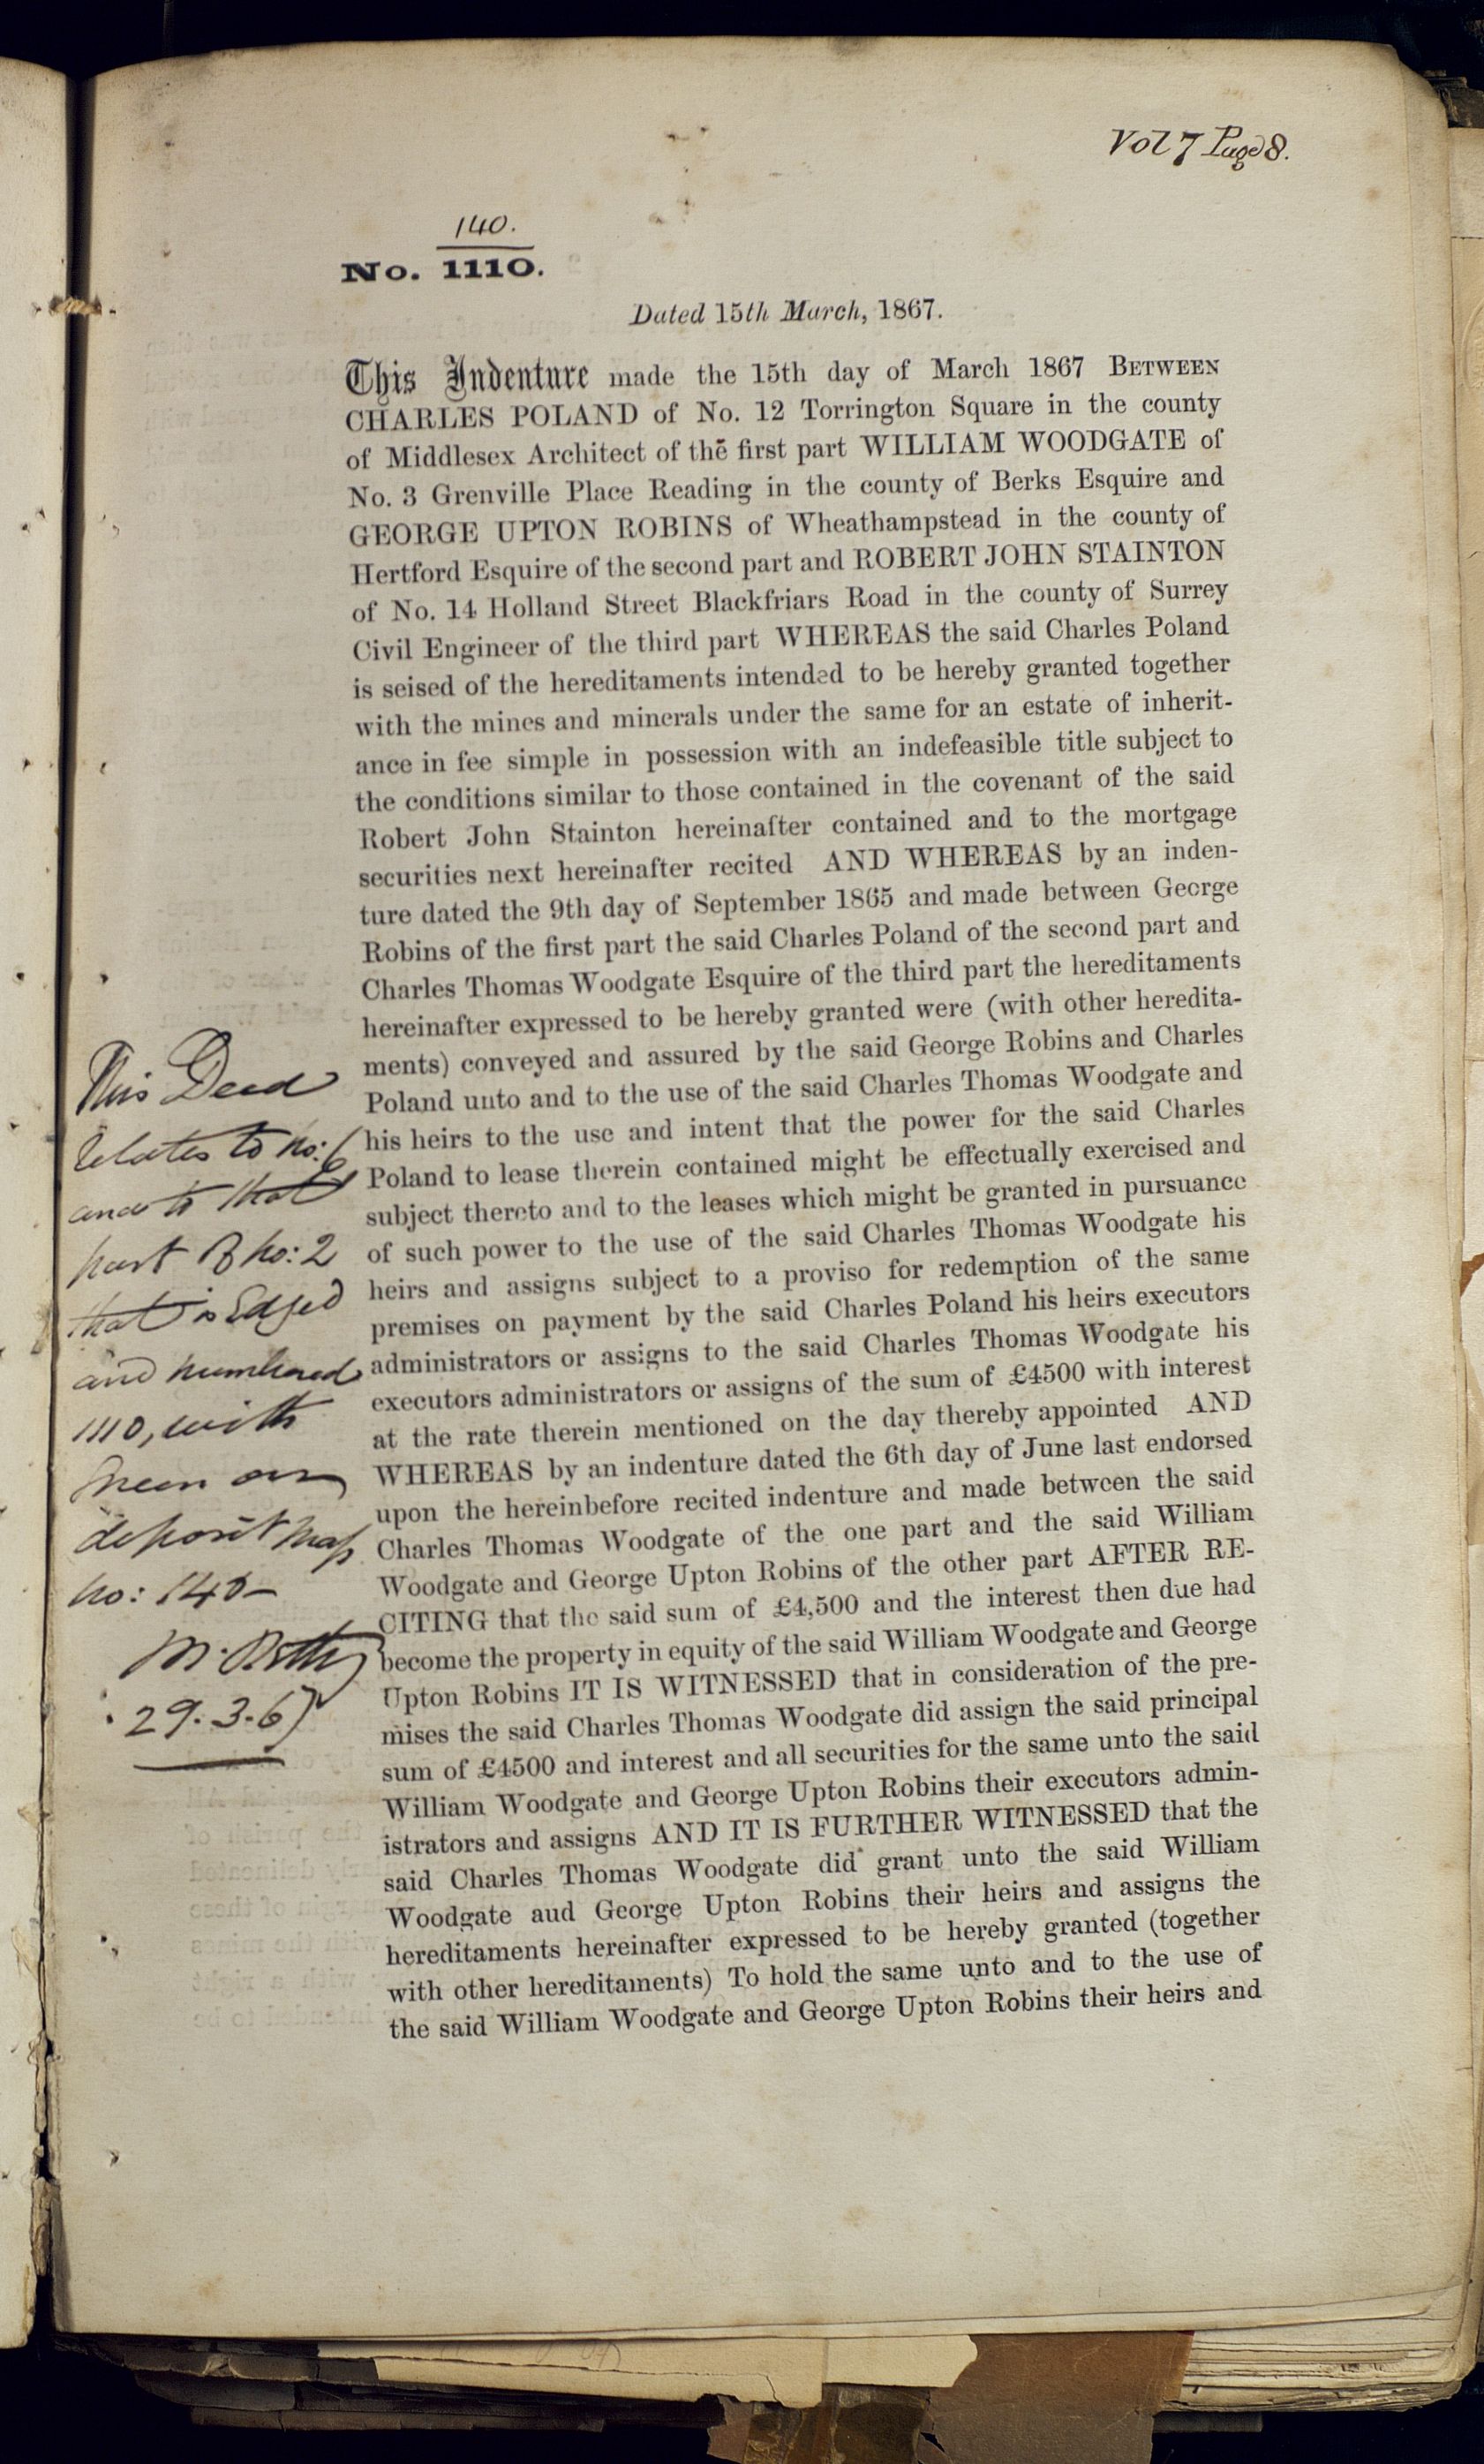 Vol 7 Page 8.
140.
No. 1110.
Dated 15th March, 1867.
This Indenture made the 15th day of March 1867 BETWEEN
CHARLES POLAND of No. 12 Torrington Square in the county
of Middlesex Architect of the first part WILLIAM WOODGATE of
No. 3 Grenville Place Reading in the county of Berks Esquire and
GEORGE UPTON ROBINS of Wheathampstead in the county of
Hertford Esquire of the second part and ROBERT JOHN STAINTON
of No. 14 Holland Street Blackfriars Road in the county of Surrey
Civil Engineer of the third part WHEREAS the said Charles Poland
is seised of the hereditaments intended to be hereby granted together
with the mines and minerals under the same for an estate of inherit-
ance in fee simple in possession with an indefeasible title subject to
the conditions similar to those contained in the covenant of the said
Robert John Stainton hereinafter contained and to the mortgage
securities next hereinafter recited AND WHEREAS by an inden-
ture dated the 9th day of September 1865 and made between George
Robins of the first part the said Charles Poland of the second part and
Charles Thomas Woodgate Esquire of the third part the hereditaments
hereinafter expressed to be hereby granted were (with other heredita-
ments) conveyed and assured by the said George Robins and Charles
Poland unto and to the use of the said Charles Thomas Woodgate and
his heirs to the use and intent that the power for the said Charles
Poland to lease therein contained might be effectually exercised and
subject thereto and to the leases which might be granted in pursuance
of such power to the use of the said Charles Thomas Woodgate his
heirs and assigns subject to a proviso for redemption of the same
premises on payment by the said Charles Poland his heirs executors
administrators or assigns to the said Charles Thomas Woodgate his
executors administrators or assigns of the sum of £4500 with interest
at the rate therein mentioned on the day thereby appointed AND
WHEREAS by an indenture dated the 6th day of June last endorsed
upon the hereinbefore recited indenture and made between the said
Charles Thomas Woodgate of the one part and the said William
Woodgate and George Upton Robins of the other part AFTER RE-
CITING that the said sum of £4,500 and the interest then due had
become the property in equity of the said William Woodgate and George
Upton Robins IT IS WITNESSED that in consideration of the pre-
mises the said Charles Thomas Woodgate did assign the said principal
sum of £4500 and interest and all securities for the same unto the said
William Woodgate and George Upton Robins their executors admin-
istrators and assigns AND IT IS FURTHER WITNESSED that the
said Charles Thomas Woodgate did grant unto the said William
Woodgate aud George Upton Robins their heirs and assigns the
hereditaments hereinafter expressed to be hereby granted (together
with other hereditaments) To hold the same unto and to the use of
the said William Woodgate and George Upton Robins their heirs and
This Deed
relates to No: 6
and to that
part of No: 2
that is Edged
and numbered
1110, with
Green on
deposit Map
No: 140-
29.3.67